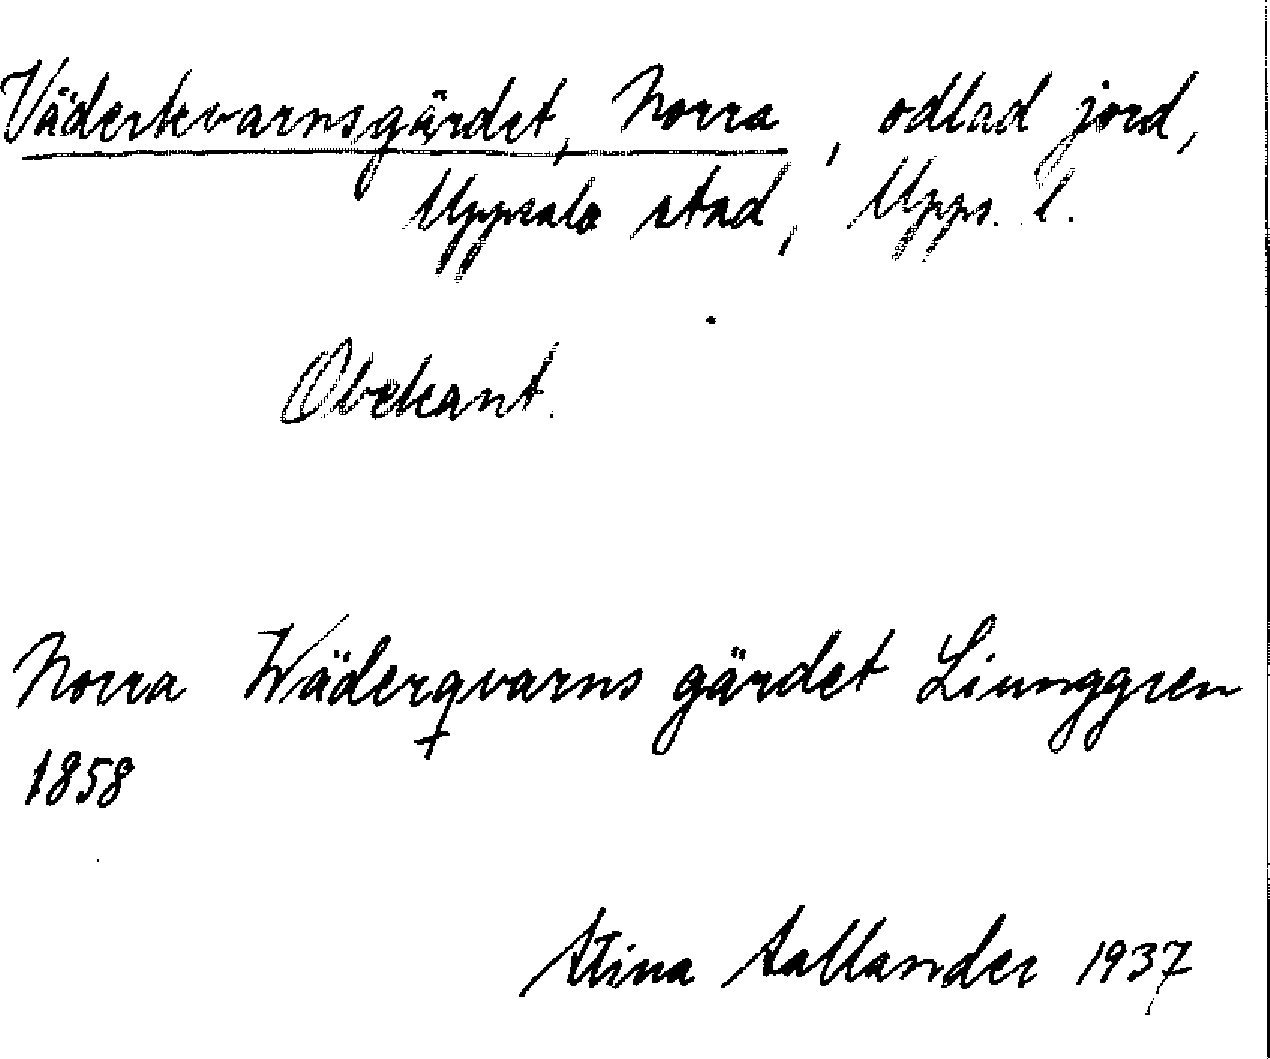 Väderkvarnsgärdet, Norra, odlad jord,
Uppsala stad, Upps. l.
Obekant.
Norra Wäderqvarns gärdet Liunggren
1858
Stina Sallander 1937